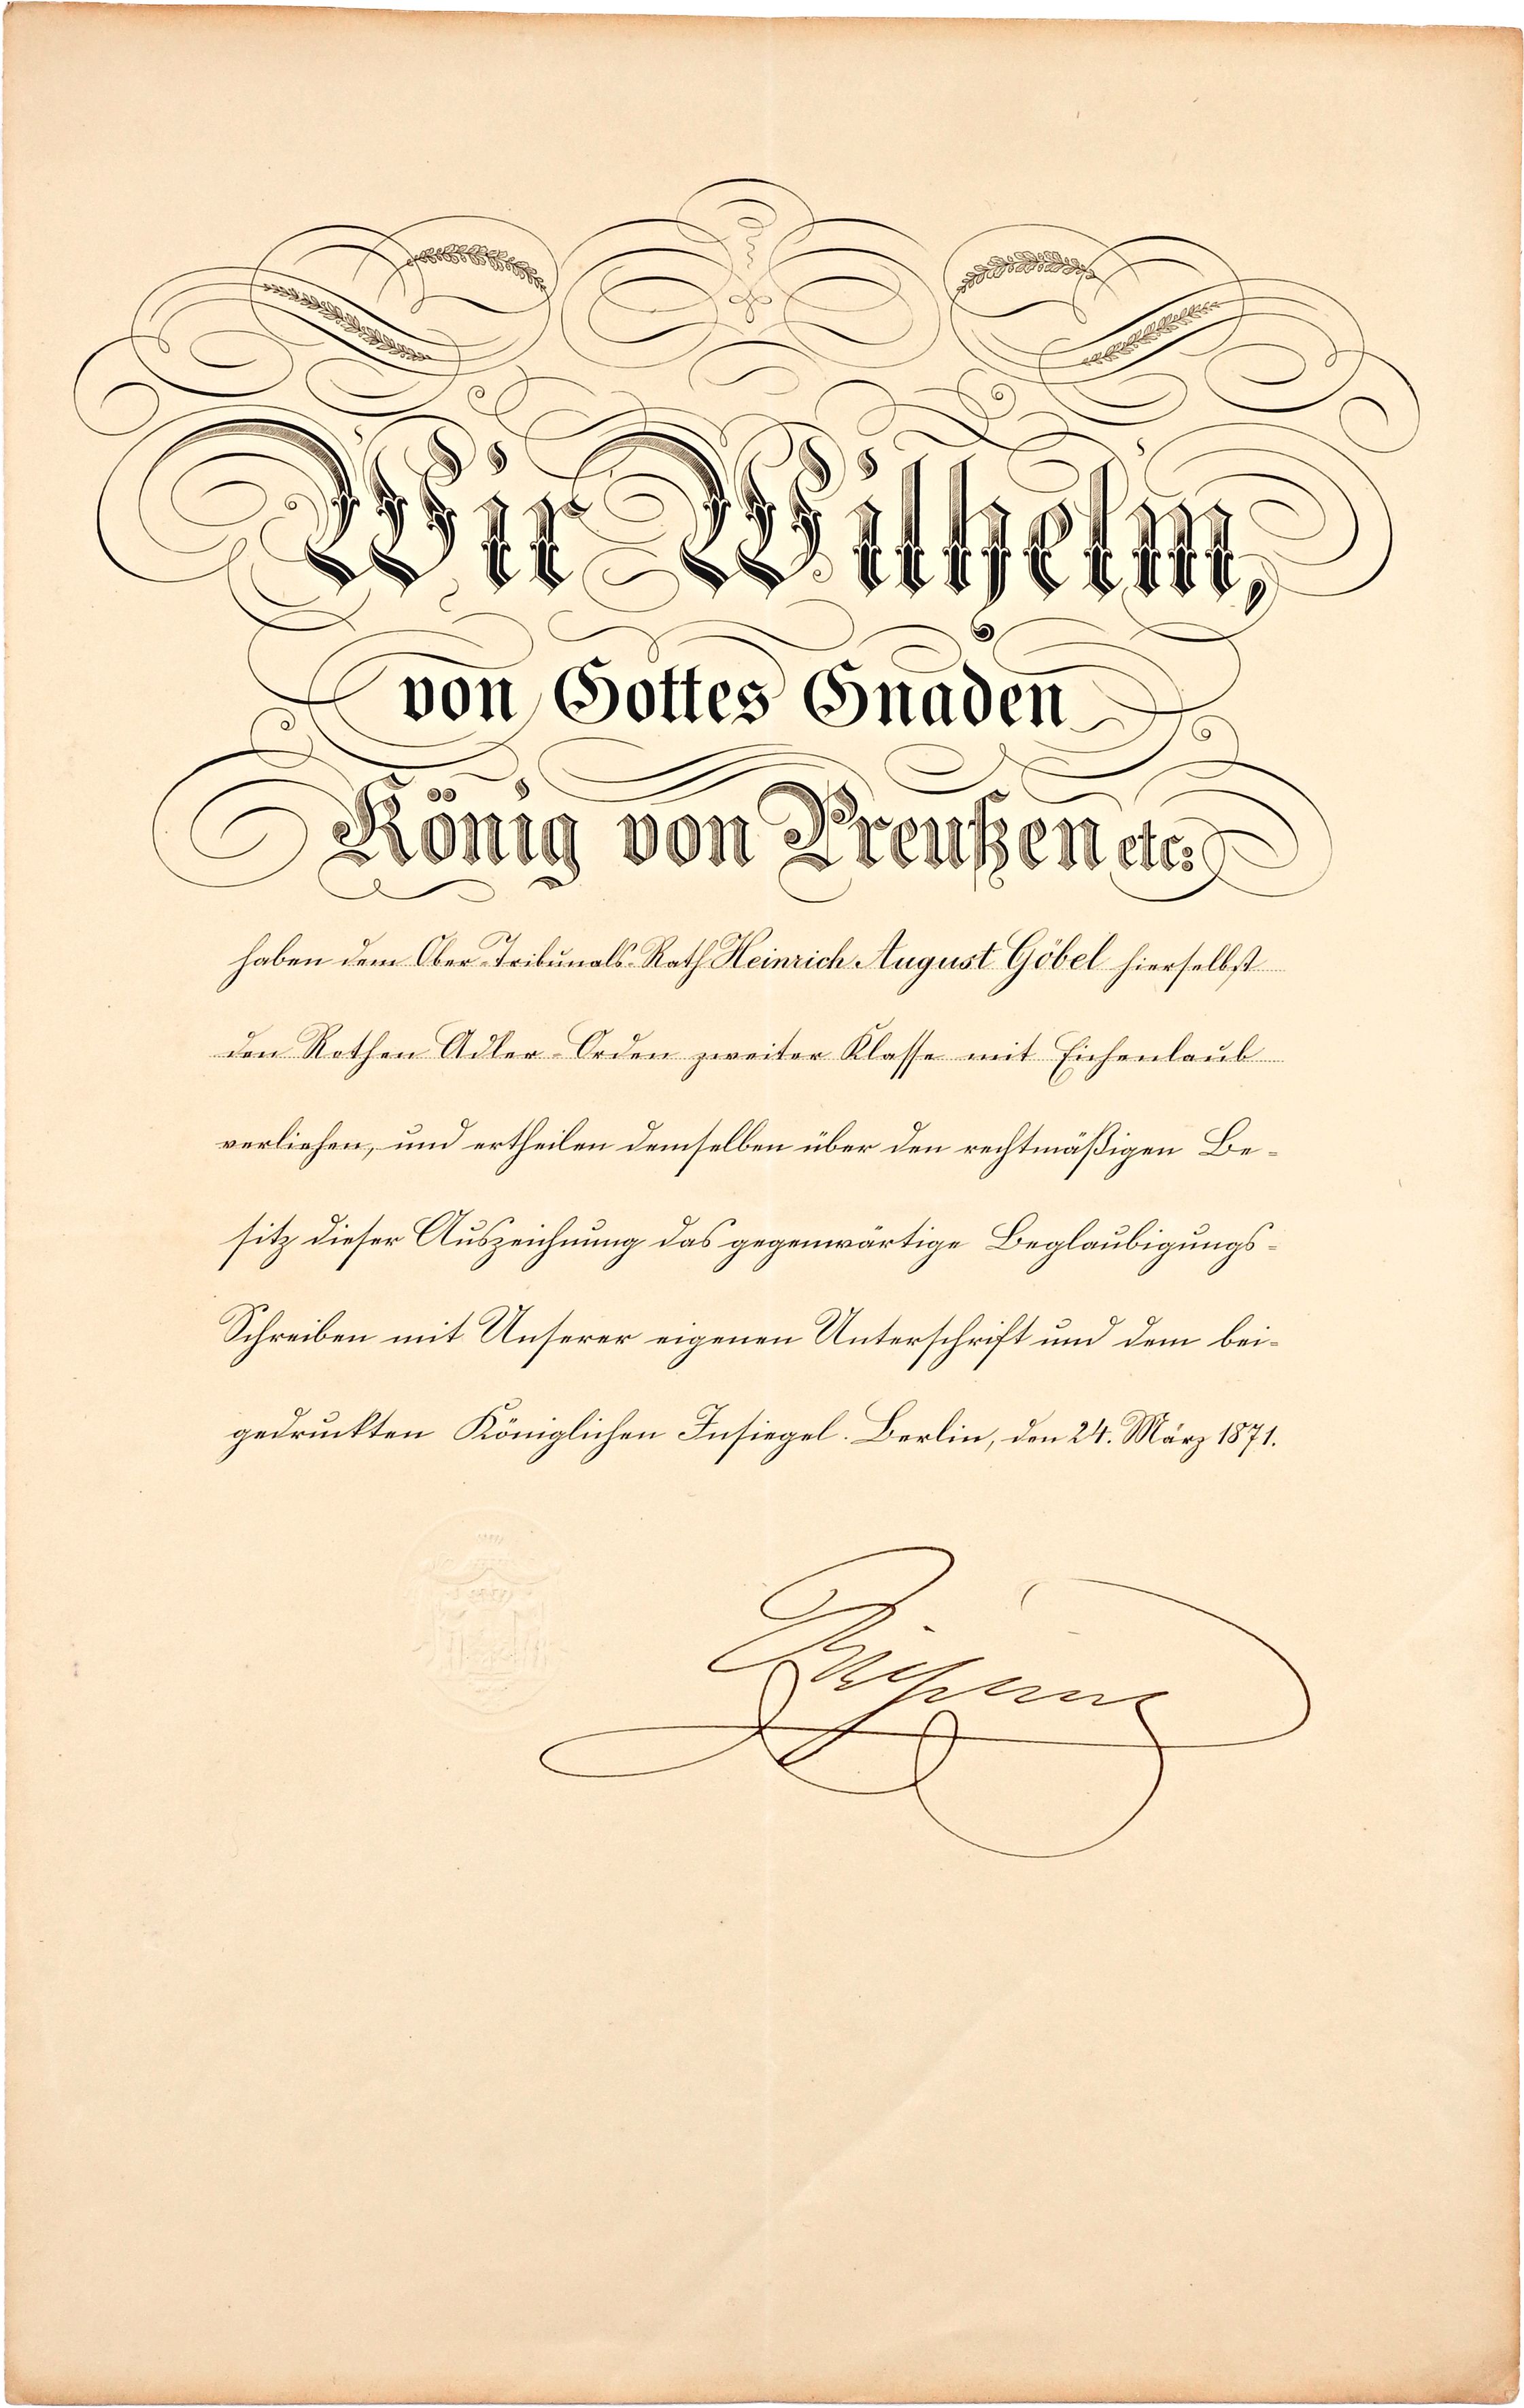 Wir Wilhelm,
von Gottes Gnaden
König von Preußen etc:
haben dem Ober-Tribunals-Rath Heinrich August Göbel hierselbst
den Rothen Adler-Orden zweiter Klasse mit Eichenlaub
verliehen, und ertheilen demselben über den rechtmäßigen Be-
sitz dieser Auszeichnung das gegenwärtige Beglaubigungs-
Schreiben mit Unserer eigenen Unterschrift und dem bei-
gedruckten Königlichen Insiegel. Berlin, den 24. März 1871.
Wilhelm